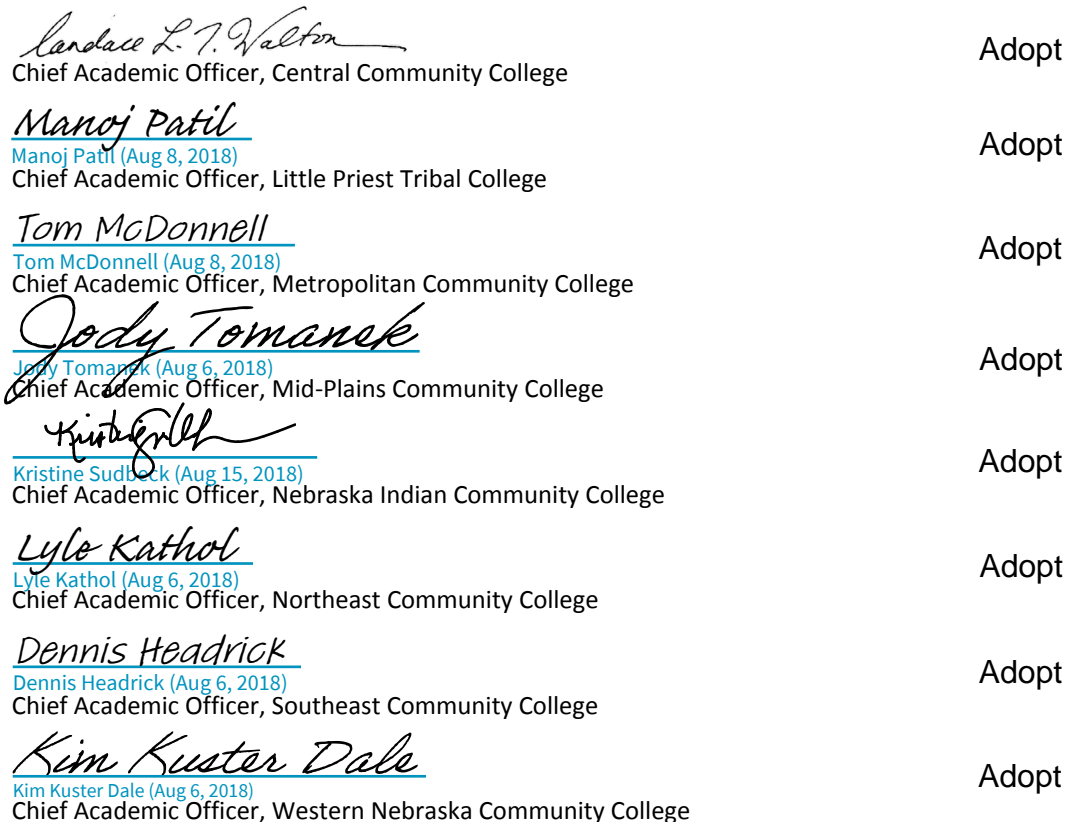 Candace L. T. Walton
Adopt
Chief Academic Officer, Central Community College
Manoj Patil
Adopt
Manoj Patil (Aug 8, 2018)
Chief Academic Officer, Little Priest Tribal College
Tom McDonnell
Adopt
Tom McDonnell (Aug 8, 2018)
Chief Academic Officer, Metropolitan Community College
Jody Tomanek
Adopt
Jody Tomanek (Aug 6, 2018)
Chief Academic Officer, Mid-Plains Community College
Adopt
Kristine Sudbeck (Aug 15, 2018)
Chief Academic Officer, Nebraska Indian Community College
Lyle Kathol
Adopt
Lyle Kathol (Aug 6, 2018)
Chief Academic Officer, Northeast Community College
Dennis Headrick
Adopt
Dennis Headrick (Aug 6, 2018)
Chief Academic Officer, Southeast Community College
Kim Kuster Dale
Adopt
Kim Kuster Dale (Aug 6, 2018)
Chief Academic Officer, Western Nebraska Community College